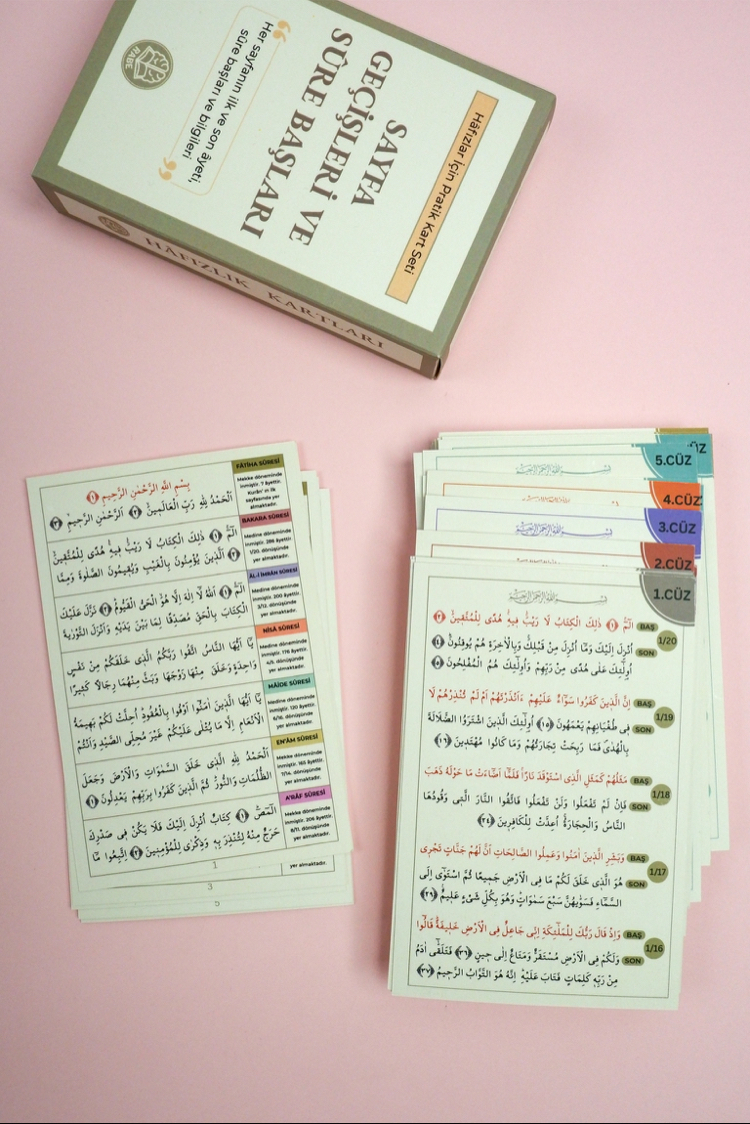 Hâfızlar İçin Pratik Kart Seti
SAYFA
GEÇİŞLERİ VE
SÛRE BAŞLARI
“Her sayfanın ilk ve son âyeti,
sûre başları ve bilgileri”
RABE
HÂFIZLIK KARTLARI
FÂTİHA SÛRESİ
Mekke döneminde
inmiştir. 7 âyettir.
Kurân'ın ilk
sayfasında yer
almaktadır.
بِسْمِ اللّٰهِ الرَّحْمٰنِ الرَّحٖيمِ ﴿١﴾
اَلْحَمْدُ لِلّٰهِ رَبِّ الْعَالَمٖينَ ﴿٢﴾ اَلرَّحْمٰنِ الرَّحٖيمِ ﴿٣﴾
BAKARA SÛRESİ
Medine döneminde
inmiştir. 286 âyettir.
1/20. dönüşünde
yer almaktadır.
الٓمٓ ﴿١﴾ ذٰلِكَ الْكِتَابُ لَا رَيْبَ فٖيهِ هُدًى لِلْمُتَّقٖينَ
﴿٢﴾ اَلَّذٖينَ يُؤْمِنُونَ بِالْغَيْبِ وَيُقٖيمُونَ الصَّلٰوةَ وَمِمَّا
ÂL-İ İMRÂN SÛRESİ
Medine döneminde
inmiştir. 200 âyettir.
3/12. dönüşünde
yer almaktadır.
الٓمٓ ﴿١﴾ اَللّٰهُ لَٓا اِلٰهَ اِلَّا هُوَ الْحَيُّ الْقَيُّومُ ﴿٢﴾ نَزَّلَ عَلَيْكَ
الْكِتَابَ بِالْحَقِّ مُصَدِّقًا لِمَا بَيْنَ يَدَيْهِ وَاَنْزَلَ التَّوْرٰيةَ
NİSÂ SÛRESİ
Medine döneminde
inmiştir. 176 âyettir.
4/4. dönüşünde
yer almaktadır.
يَٓا اَيُّهَا النَّاسُ اتَّقُوا رَبَّكُمُ الَّذٖى خَلَقَكُمْ مِنْ نَفْسٍ
وَاحِدَةٍ وَخَلَقَ مِنْهَا زَوْجَهَا وَبَثَّ مِنْهُمَا رِجَالًا كَثٖيرًا
MÂİDE SÛRESİ
Medine döneminde
inmiştir. 120 âyettir.
6/16. dönüşünde
yer almaktadır.
يَٓا اَيُّهَا الَّذٖينَ اٰمَنُٓوا اَوْفُوا بِالْعُقُودِ اُحِلَّتْ لَكُمْ بَهٖيمَةُ
الْاَنْعَامِ اِلَّا مَا يُتْلٰى عَلَيْكُمْ غَيْرَ مُحِلِّى الصَّيْدِ وَاَنْتُمْ
EN'ÂM SÛRESİ
Mekke döneminde
inmiştir. 165 âyettir.
7/14. dönüşünde
yer almaktadır.
اَلْحَمْدُ لِلّٰهِ الَّذٖى خَلَقَ السَّمٰوَاتِ وَالْاَرْضَ وَجَعَلَ
الظُّلُمَاتِ وَالنُّورَ ثُمَّ الَّذٖينَ كَفَرُوا بِرَبِّهِمْ يَعْدِلُونَ ﴿١﴾
A'RÂF SÛRESİ
Mekke döneminde
inmiştir. 206 âyettir.
8/11. dönüşünde
yer almaktadır.
الٓمٓصٓ ﴿١﴾ كِتَابٌ اُنْزِلَ اِلَيْكَ فَلَا يَكُنْ فٖى صَدْرِكَ
حَرَجٌ مِنْهُ لِتُنْذِرَ بِهٖ وَذِكْرٰى لِلْمُؤْمِنٖينَ ﴿٢﴾ اِتَّبِعُوا مَٓا
1
yer almaktadır.
3
5.CÜZ
4.CÜZ
3.CÜZ
2.CÜZ
1.CÜZ
بِسْمِ اللّٰهِ الرَّحْمٰنِ الرَّحٖيمِ
1/20
BAŞ الٓمٓ ﴿١﴾ ذٰلِكَ الْكِتَابُ لَا رَيْبَ فٖيهِ هُدًى لِلْمُتَّقٖينَ ﴿٢﴾
SON اُنْزِلَ اِلَيْكَ وَمَٓا اُنْزِلَ مِنْ قَبْلِكَ وَبِالْاٰخِرَةِ هُمْ يُوقِنُونَ ﴿٤﴾
اُولٰٓئِكَ عَلٰى هُدًى مِنْ رَبِّهِمْ وَاُولٰٓئِكَ هُمُ الْمُفْلِحُونَ ﴿٥﴾
1/19
BAŞ اِنَّ الَّذٖينَ كَفَرُوا سَوَٓاءٌ عَلَيْهِمْ ءَاَنْذَرْتَهُمْ اَمْ لَمْ تُنْذِرْهُمْ لَا
SON فٖى طُغْيَانِهِمْ يَعْمَهُونَ ﴿١٥﴾ اُولٰٓئِكَ الَّذٖينَ اشْتَرَوُا الضَّلَالَةَ
بِالْهُدٰى فَمَا رَبِحَتْ تِجَارَتُهُمْ وَمَا كَانُوا مُهْتَدٖينَ ﴿١٦﴾
1/18
BAŞ مَثَلُهُمْ كَمَثَلِ الَّذِى اسْتَوْقَدَ نَارًا فَلَمَّٓا اَضَٓاءَتْ مَا حَوْلَهُ ذَهَبَ
SON فَاِنْ لَمْ تَفْعَلُوا وَلَنْ تَفْعَلُوا فَاتَّقُوا النَّارَ الَّتٖى وَقُودُهَا
النَّاسُ وَالْحِجَارَةُ اُعِدَّتْ لِلْكَافِرٖينَ ﴿٢٤﴾
1/17
BAŞ وَبَشِّرِ الَّذٖينَ اٰمَنُوا وَعَمِلُوا الصَّالِحَاتِ اَنَّ لَهُمْ جَنَّاتٍ تَجْرٖى
SON هُوَ الَّذٖى خَلَقَ لَكُمْ مَا فِى الْاَرْضِ جَمٖيعًا ثُمَّ اسْتَوٰٓى اِلَى
السَّمَٓاءِ فَسَوّٰيهُنَّ سَبْعَ سَمٰوَاتٍ وَهُوَ بِكُلِّ شَیْءٍ عَلٖيمٌ ﴿٢٩﴾
1/16
BAŞ وَاِذْ قَالَ رَبُّكَ لِلْمَلٰٓئِكَةِ اِنّٖى جَاعِلٌ فِى الْاَرْضِ خَلٖيفَةً قَالُٓوا
SON وَلَكُمْ فِى الْاَرْضِ مُسْتَقَرٌّ وَمَتَاعٌ اِلٰى حٖينٍ ﴿٣٦﴾ فَتَلَقّٰٓى اٰدَمُ
مِنْ رَبِّهٖ كَلِمَاتٍ فَتَابَ عَلَيْهِ اِنَّهُ هُوَ التَّوَّابُ الرَّحٖيمُ ﴿٣٧﴾